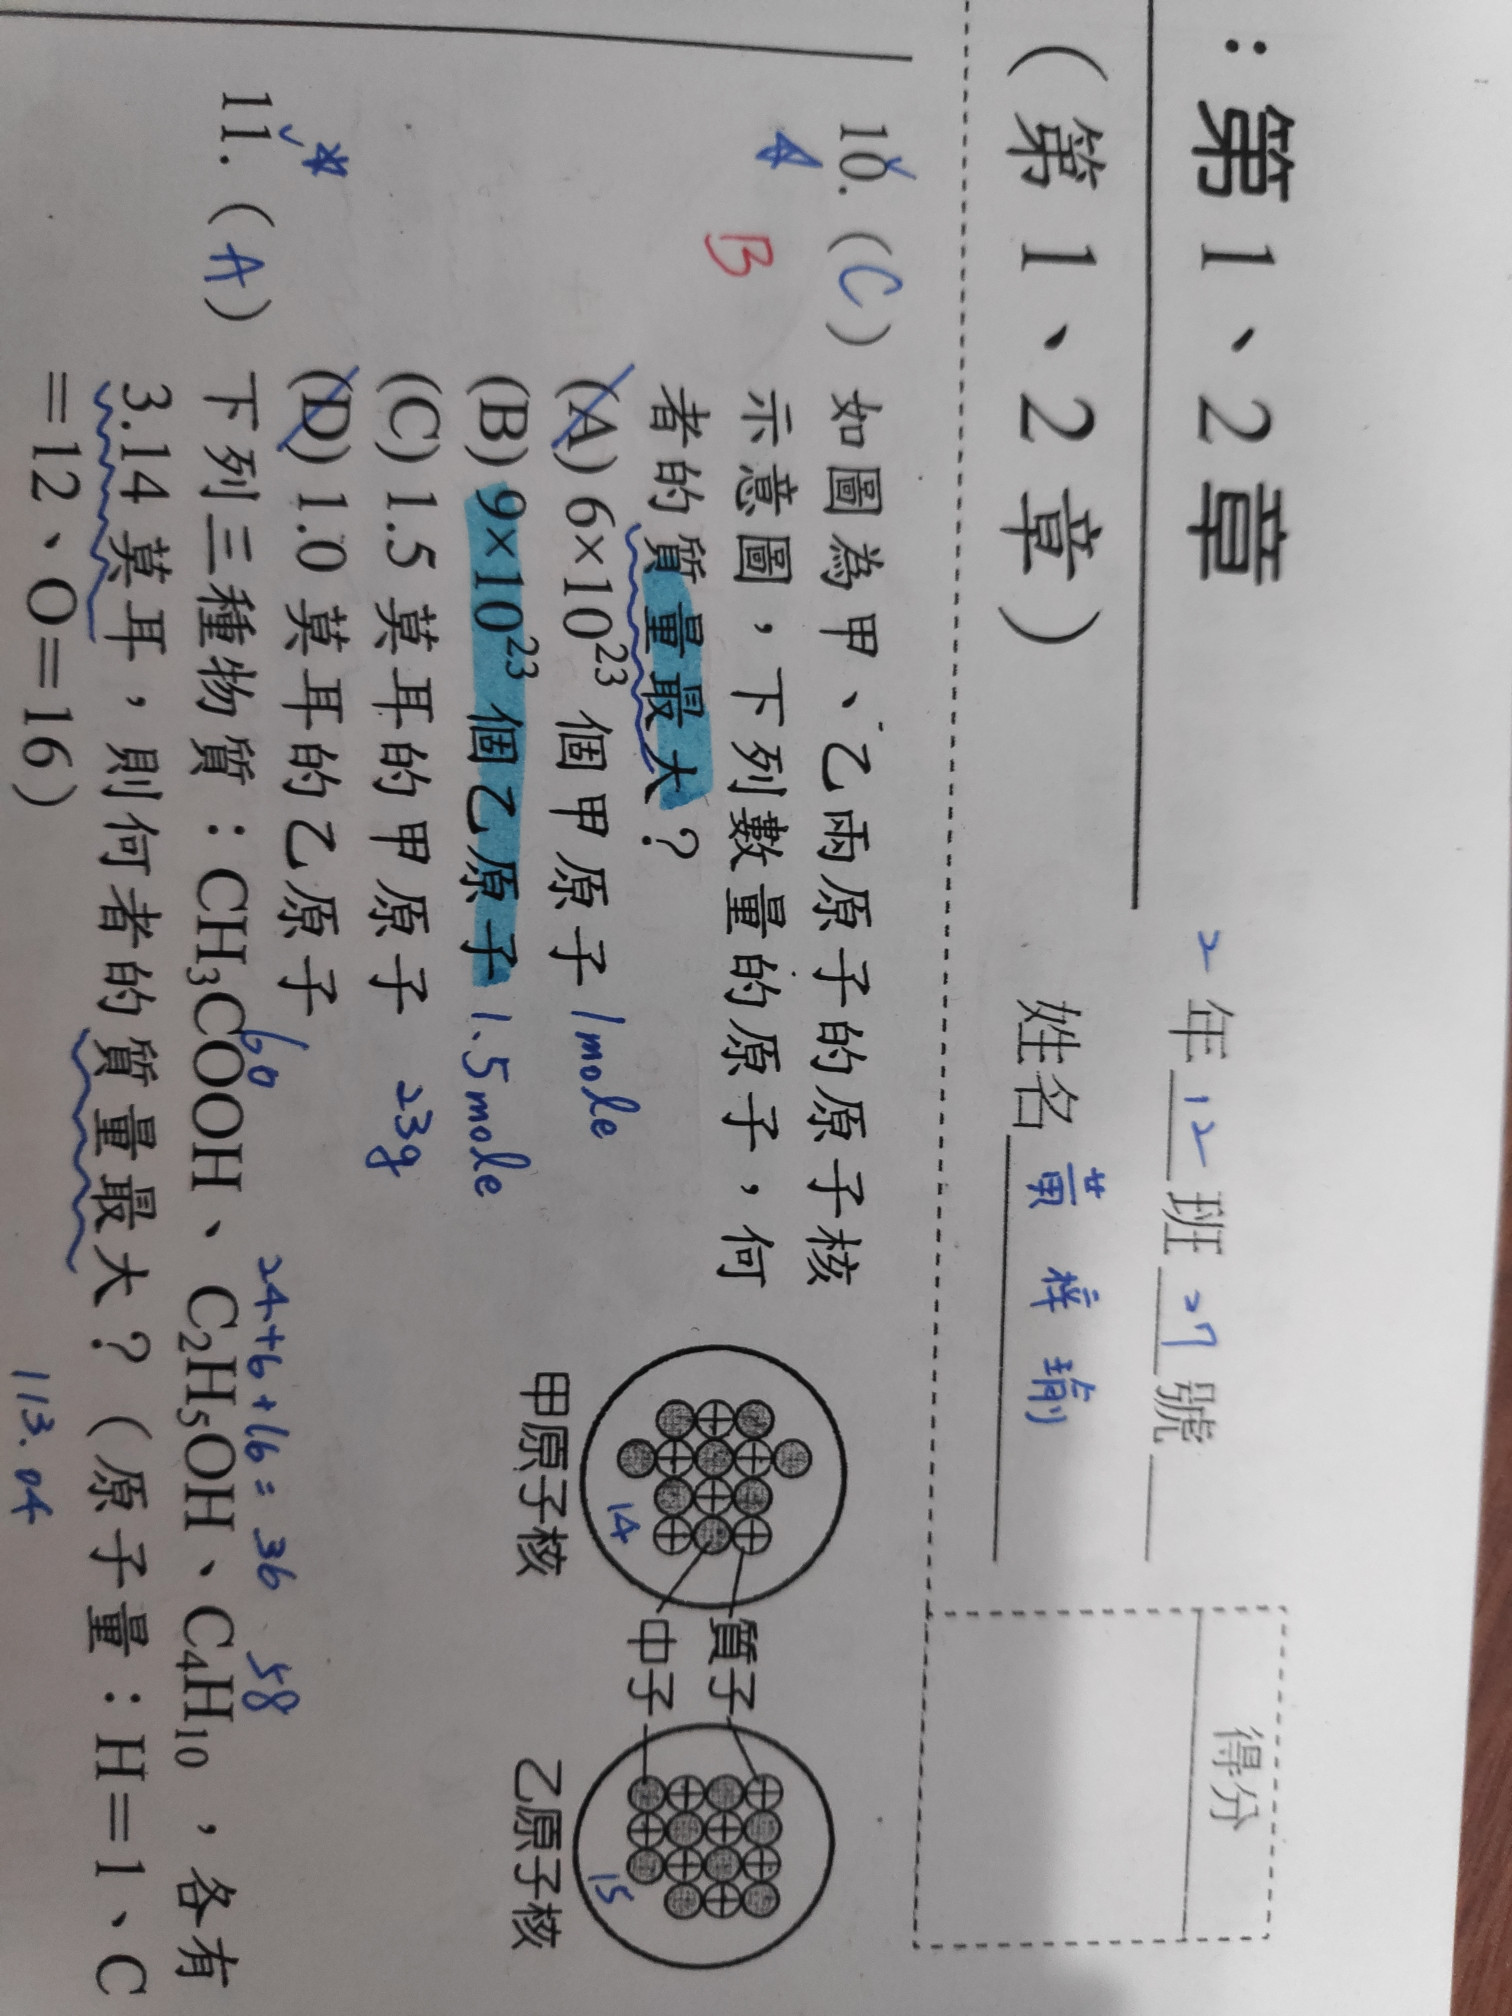 ：第1、2章
2年12班27號
（第1、2章）
姓名
得分
10.（C）如圖為甲、乙兩原子的原子核
B
示意圖，下列數量的原子，何
者的質量最大？
(A) 6×10²³ 個甲原子 1mole
(B) 9×10²³ 個乙原子 1.5mole
(C) 1.5 莫耳的甲原子 23g
(D) 1.0 莫耳的乙原子
質子
中子
14
15
甲原子核
乙原子核
60 24+6+16=36 58
11.（A）下列三種物質：CH₃COOH、C₂H₅OH、C₄H₁₀，各有
3.14 莫耳，則何者的質量最大？（原子量：H＝1、C
＝12、O＝16）
113.04